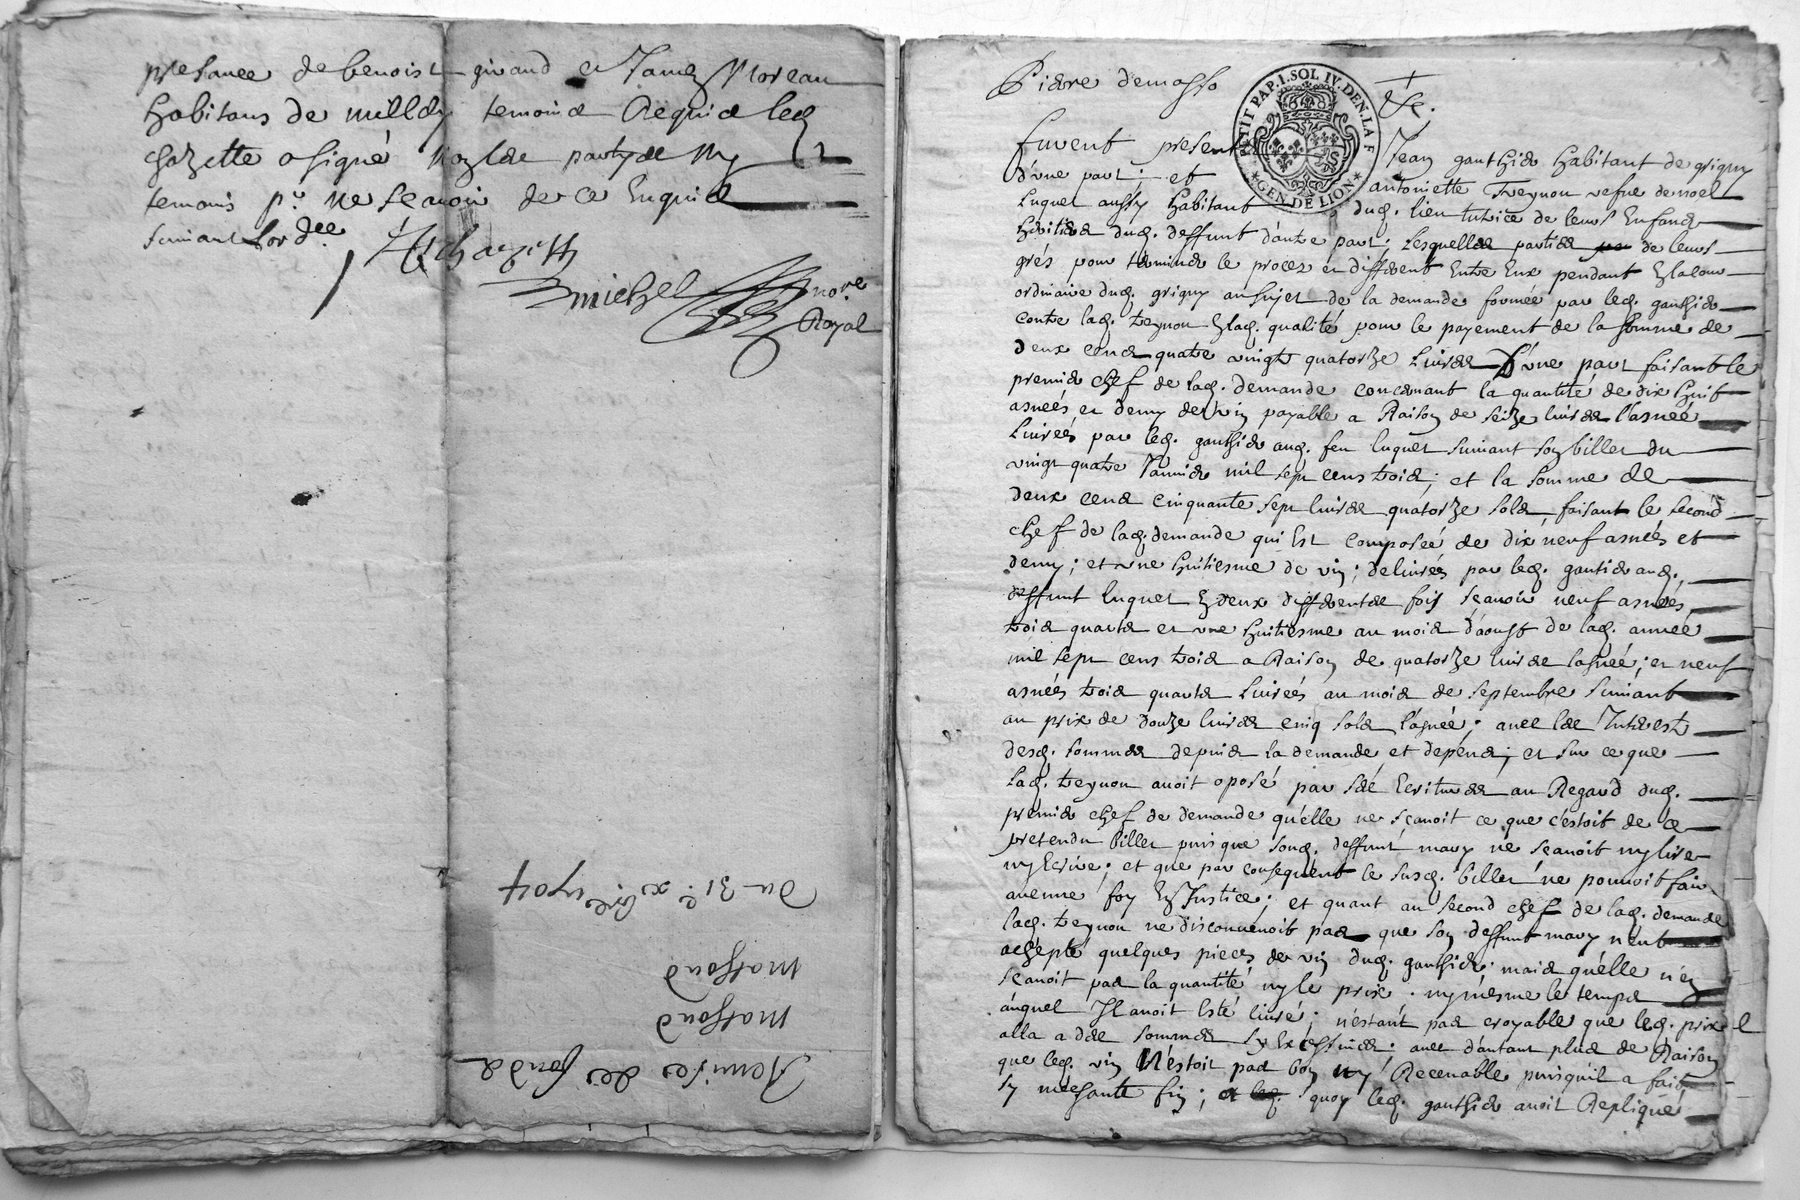 presance de benoist girand et Jame Moreau
habitans de millery temoins Requis led.
chazette a signé non les partyes ny
temoins pr. ne scavoir de ce Enquis
suivant lordce
Michel nore.
Royal
du 31e. xbre 1704
Massond
Massond
Remises des fonds
Pierre demasso
PETIT PAP. I. SOL IV. DEN. LA F
GEN. DE LION
Furent presents Jean gauthier habitant de grigny
d'une part; et antoinette Teynon vefve de noel
Luquet aussy habitant dud. lieu tutrice de leurs Enfans
heritiers dud. deffunt d'autre part; Lesquelles parties de leurs
grés pour terminer le procez et different Entre Eux pendant En la cour
ordinaire dud. grigny au sujet de la demande formée par led. gauthier
contre lad. teynon En lad. qualité pour le payement de la somme de
deux cens quatre vingt quatorze Livres D'une part faisant le
premier chef de lad. demande concernant la quantité de dix huit
asneés et demy de vin payable a Raison de seize livres l'asneé
Livreés par led. gauthier aud. feu luquet suivant son billet du
vingt quatre Janvier mil sept cens trois; et la somme de
deux cens cinquante sept livres quatorze sols faisant le second
chef de lad. demande qui Est composeé de dix neuf asneés et
demy; et une huitiesme de vin; delivreés par led. gautier aud.
deffunt luquet En deux differentes fois scavoir neuf asneés
trois quarts et une huitiesme au mois d'aoust de lad. anneé
mil sept cens trois a Raison de quatorze livres lasneé; et neuf
asneés trois quarts Livreés au mois de septembre suivant
au prix de douze livres cinq sols l'asneé; avec les Interests
desd. sommes depuis la demande et depens; et sur ce que
lad. teynon avoit oposé par ses Ecritures au Regard dud.
premier chef de demande qu'elle ne scavoit ce que c'estoit de ce
pretendu billet puis que sond. deffunt mary ne scavoit ny lire
ny Ecrire; et que par consequent le susd. billet ne pouvoit faire
aucune foy En Justice; et quant au second chef de lad. demande
lad. teynon ne disconvenoit pas que son deffunt mary n'eut
achépté quelques pieces de vin dud. gauthier; mais qu'elle n'en
scavoit pas la quantité ny le prix; ny mesme le temps
auquel Il avoit Esté livré; n'estant pas croyable que led. prix
alla a des sommes sy Excessives; avec d'autant plus de Raison
que led. vin N'estoit pas bon ny Recevable puisquil a fait
sy mechante fin; a quoy led. gauthier avoit Repliqué